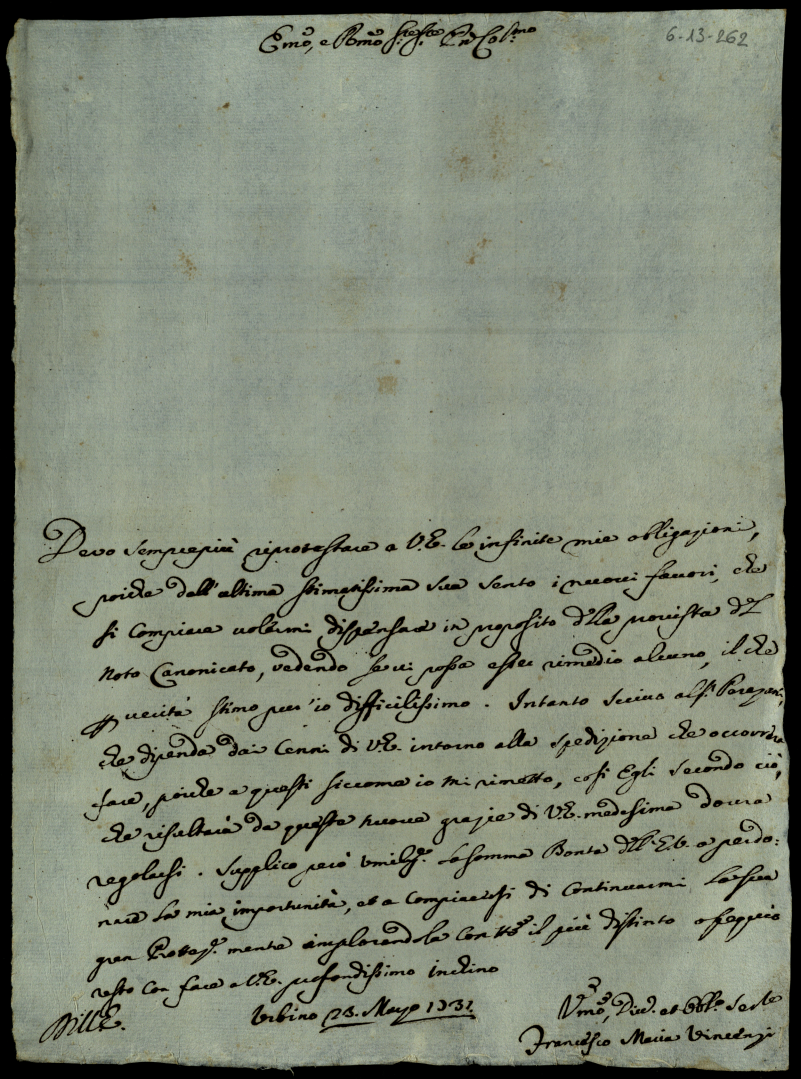 6-13-262
Em̃o, e Rm̃o Sig.re Sig.re Prõn Col.mo
Devo semprepiù riprotestare a V.E. le infinite mie obligazioni,
poiche dall'ultima stimatissima sua sento i nuovi favori, che
si compiace volermi dispensare in proposito della provista del
noto Canonicato, vedendo se vi possa esser rimedio alcuno, il che
p verità stimo pur io difficilissimo. Intanto scrivo al Sig.
che dipenda dai Cenni di V.E. intorno alla spedizione che occorrerà
fare, poiche a questi siccome io mi rimetto, così Egli secondo ciò,
che risulterà da queste nuove grazie di V.E. medesima dovrà
regolarsi. Supplico però umilm.e la somma Bontà dell'E.V. a perdo:
nare la mia importunità, et a compiacersi di continuarmi la sua
gran Protez.e mentre implorandola con tt̃o il più distinto ossequio
resto con fare a V.E. profondissimo inchino
Di V.E.
Urbino 23. Mago 1731.
Um̃o, Div.o et Obb.o Ser.re
Francesco Maria Vincenzi